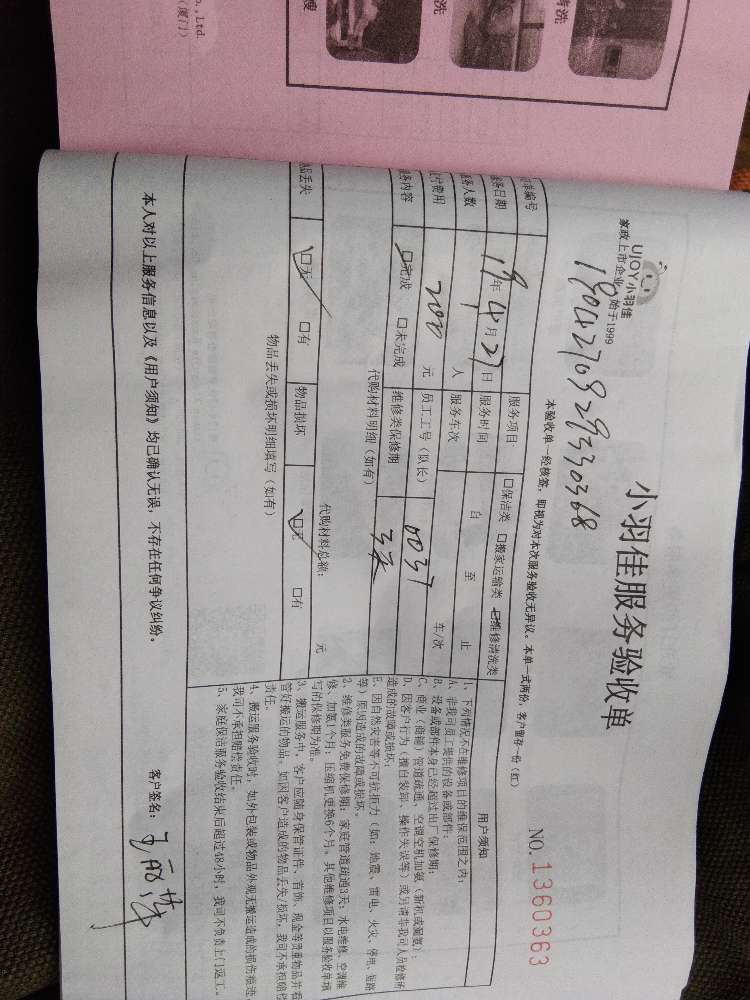 ., Ltd.
(厦门)
洗
清洗
UJOY小羽佳
家政上市企业 始于1999
小羽佳服务验收单
NO. 1360363
1904270929330368
本验收单一经核签，即视为对本次服务验收无异议。本单一式两份，客户留存一份（红）
单编号 服务项目 □保洁类 □搬家运输类 ☑维修清洗类
务日期 19年4月27日 服务时间 自 至 止
务人数 1 人 服务车次 车/次
付费用 元 员工工号（队长） 0037
务内容 ☑完成 □未完成 维修类保修期 3天
代购材料明细（如有）
代购材料总额： 元
品丢失 ☑无 □有 物品损坏 ☑无 □有
物品丢失或损坏明细填写（如有）
用户须知
1、下列情况不在维修项目的维保范围之内：
A、非我司员工提供的设备或部件；
B、设备或部件本身已经超过出厂保修期；
C、商业（商铺）管道疏通、空调空机加氨（新机或漏氨）；
D、因客户行为（擅自装卸、操作失误等）或另请非我司人员检修所
造成的故障或损坏；
E、因自然灾害等不可抗拒力（如：地震、雷电、火灾、停电、短路
等）原因造成的故障或损坏。
2、维修类服务免费保修期：家庭管道疏通3天；水电维修、空调维
修、加氨1个月；压缩机更换6个月。其他维修项目以服务验收单填
写的保修期为准。
3、搬运服务中，客户应随身保管证件、首饰、现金等贵重物品并看
管好搬运的物品。如因客户造成的物品丢失/损坏，我司不承担赔偿
责任。
4、搬运服务验收时，如外包装或物品外观无搬运造成的损伤痕迹，
我司不承担赔偿责任。
5、家庭保洁服务验收结束后超过48小时，我司不负责上门返工。
本人对以上服务信息以及《用户须知》均已确认无误，不存在任何争议纠纷。
客户签名：